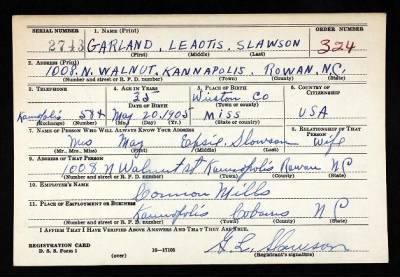 SERIAL NUMBER 1. NAME (Print) ORDER NUMBER
2713 GARLAND, LEAOTIS, SLAWSON 324
(First) (Middle) (Last)
2. ADDRESS (Print)
1008. N. WALNUT, KANNAPOLIS, ROWAN, N.C.
(Number and street or R. F. D. number) (Town) (County) (State)
3. TELEPHONE 4. AGE IN YEARS 5. PLACE OF BIRTH 6. COUNTRY OF CITIZENSHIP
Winston Co
DATE OF BIRTH (Town or county)
Kannapolis May 20, 1905 MISS USA
(Exchange) (Number) (Mo.) (Day) (Yr.) (State or country)
7. NAME OF PERSON WHO WILL ALWAYS KNOW YOUR ADDRESS 8. RELATIONSHIP OF THAT PERSON
Mrs May Slawson Wife
(Mr., Mrs., Miss) (First) (Middle) (Last)
9. ADDRESS OF THAT PERSON
1008 N Walnut St Kannapolis Rowan N C
(Number and street or R. F. D. number) (Town) (County) (State)
10. EMPLOYER'S NAME
Cannon Mills
11. PLACE OF EMPLOYMENT OR BUSINESS
Kannapolis N C
(Number and street or R. F. D. number) (Town) (County) (State)
I AFFIRM THAT I HAVE VERIFIED ABOVE ANSWERS AND THAT THEY ARE TRUE.
REGISTRATION CARD
D. S. S. Form 1 (over) 16—17105 (Registrant's signature)
G. L. Slawson